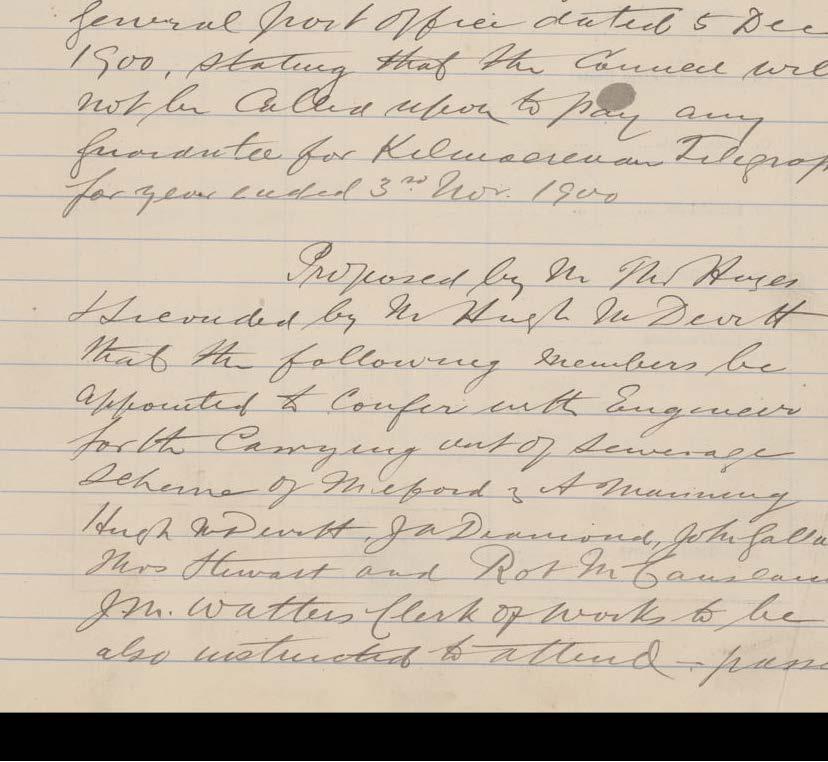 General Post Office dated 5 Dec
1900, stating that the Council wil
not be Called upon to pay any
guarantee for Kilmacrenan Telegrap
for year ended 3rd Nov. 1900
Proposed by Mr Hayes
& Seconded by Mr Hugh McDevitt
that the following members be
appointed to Confer with Engineer
for the Carrying out of Sewerage
Scheme of Milford, A Manning
Hugh McDevitt, J A Diamond, John Galla
Thos Stewart and Robt McCauslan
J M. Watters Clerk of Works to be
also instructed to attend - passe